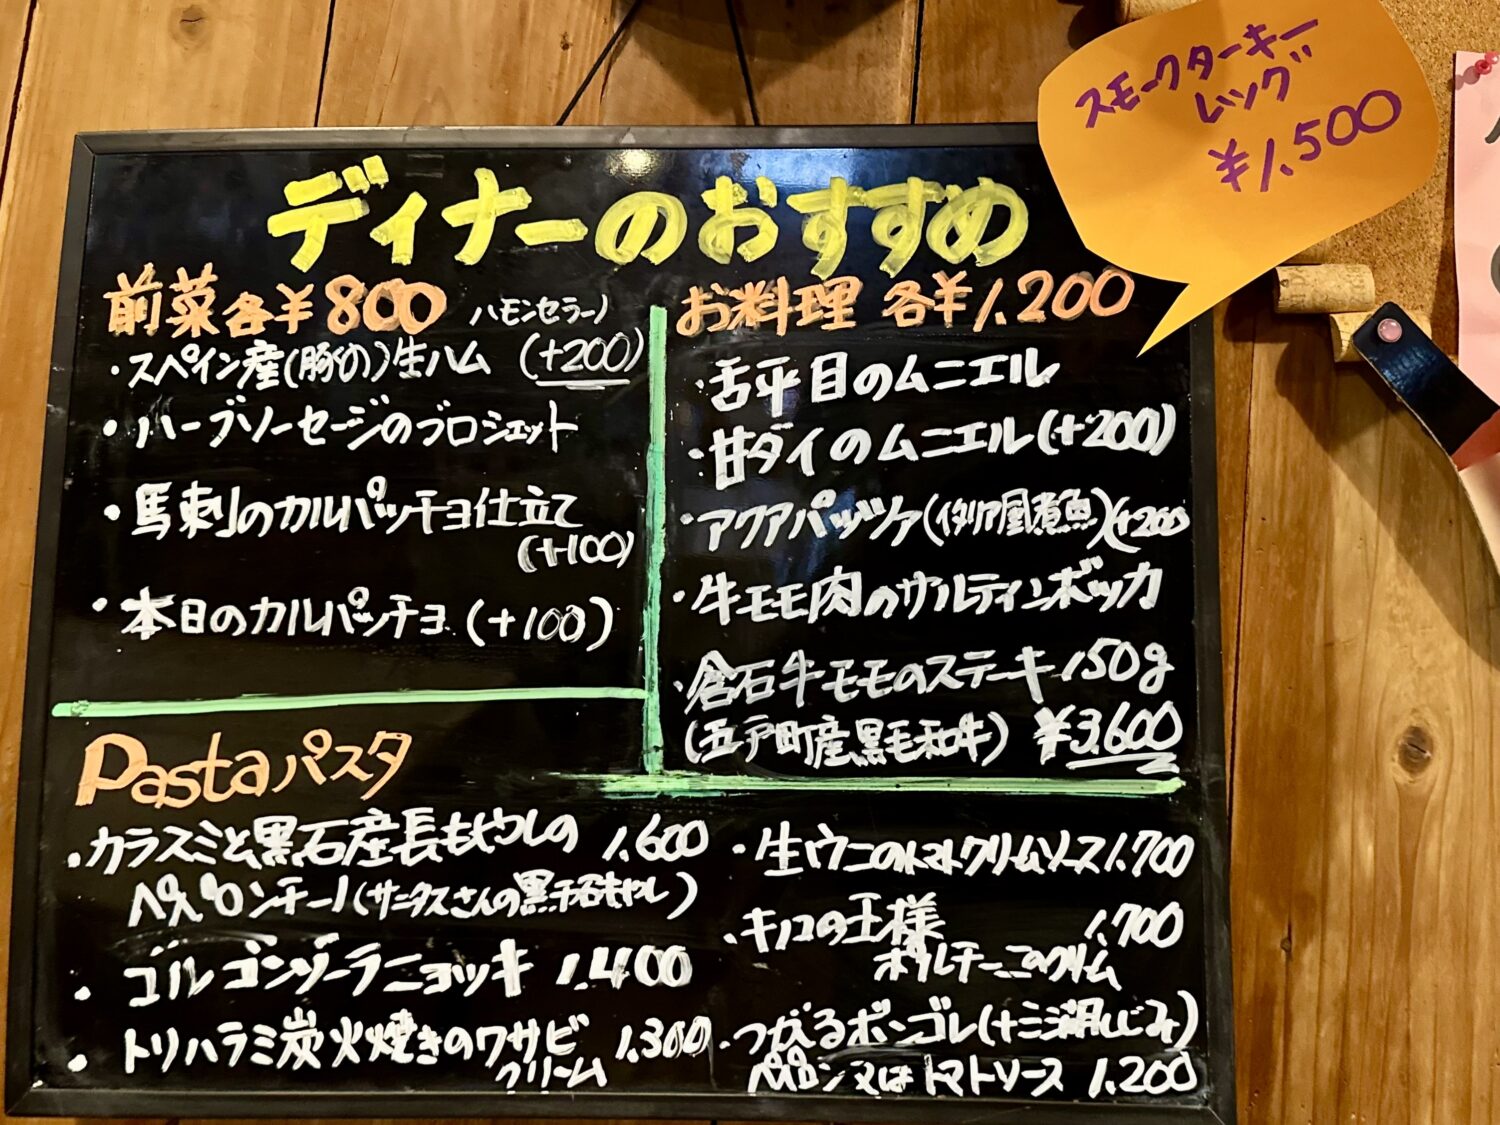 スモークターキー
レッグ
¥1,500
ディナーのおすすめ
前菜各¥800
ハモンセラーノ
・スペイン産(豚の)生ハム (+200)
・ハーブソーセージのブロシェット
・馬刺のカルパッチョ仕立て
(+100)
・本日のカルパッチョ (+100)
お料理 各¥1.200
・舌平目のムニエル
・甘ダイのムニエル(+200)
・アクアパッツァ(イタリア風煮魚)(+200
・牛モモ肉のサルティンボッカ
・倉石牛モモのステーキ 150g
(五戸町産黒毛和牛) ¥3.600
Pastaパスタ
・カラスミと黒石産長もやしの 1.600
ペペロンチーノ(サニタスさんの黒千石もやし)
・ゴルゴンゾーラニョッキ 1.400
・トリハラミ炭火焼きのワサビ 1.300
クリーム
・生ウニのトマトクリームソース 1.700
・キノコの王様 1.700
ポルチーニのクリーム
・つがるボンゴレ(十三湖しじみ)
ペペロン又はトマトソース 1.200